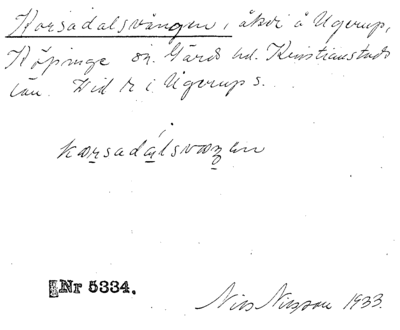 Korsadalsvången, åker å Ugerup,
Köpinge sn. Gärds hd. Kristianstads
län. Hid h i Ugerup s.
kɑrsadɑlsvɑŋen
Nr 5334.
Nils Nilsson 1933.